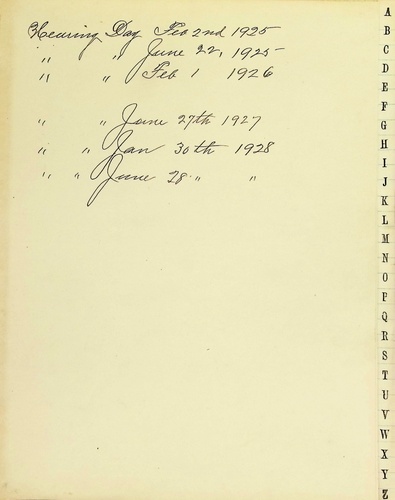 Hearing Day Feb 2nd 1925
" " June 22, 1925
" " Feb 1 1926
" " June 27th 1927
" " Jan 30th 1928
" " June 28 " "
A
B
C
D
E
F
G
H
I
J
K
L
M
N
O
P
Q
R
S
T
U
V
W
X
Y
Z